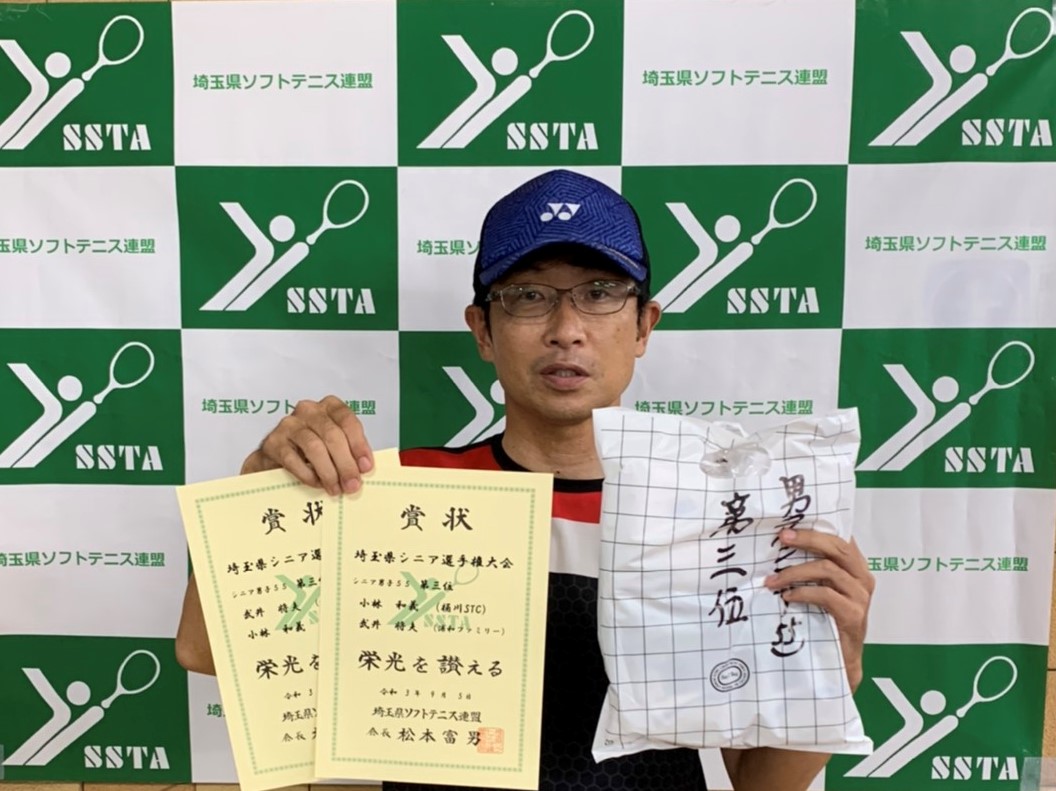 SSTA
埼玉県ソフトテニス連盟
SSTA
埼玉県ソフトテニス連盟
SSTA
玉県ソフトテニス連盟
SSTA
埼玉県ソ
SSTA
埼玉県ソフトテニス連盟
SSTA
埼玉県ソフト
盟
埼玉県ソフトテニス連盟
SSTA
SSTA
県ソフトテニス連盟
ニス連盟
SSTA
埼
SSTA
賞状
埼玉県シニア選
シニア男子55 第三位
武井 将夫
小林 和義
栄光を
令和 3
埼玉県
会長
賞状
埼玉県シニア選手権大会
シニア男子55 第三位
小林 和義 (桶川STC)
武井 将夫 (浦和ファミリー)
栄光を讃える
令和 3年 9月 5日
埼玉県ソフトテニス連盟
会長 松本富男
男子
第三位